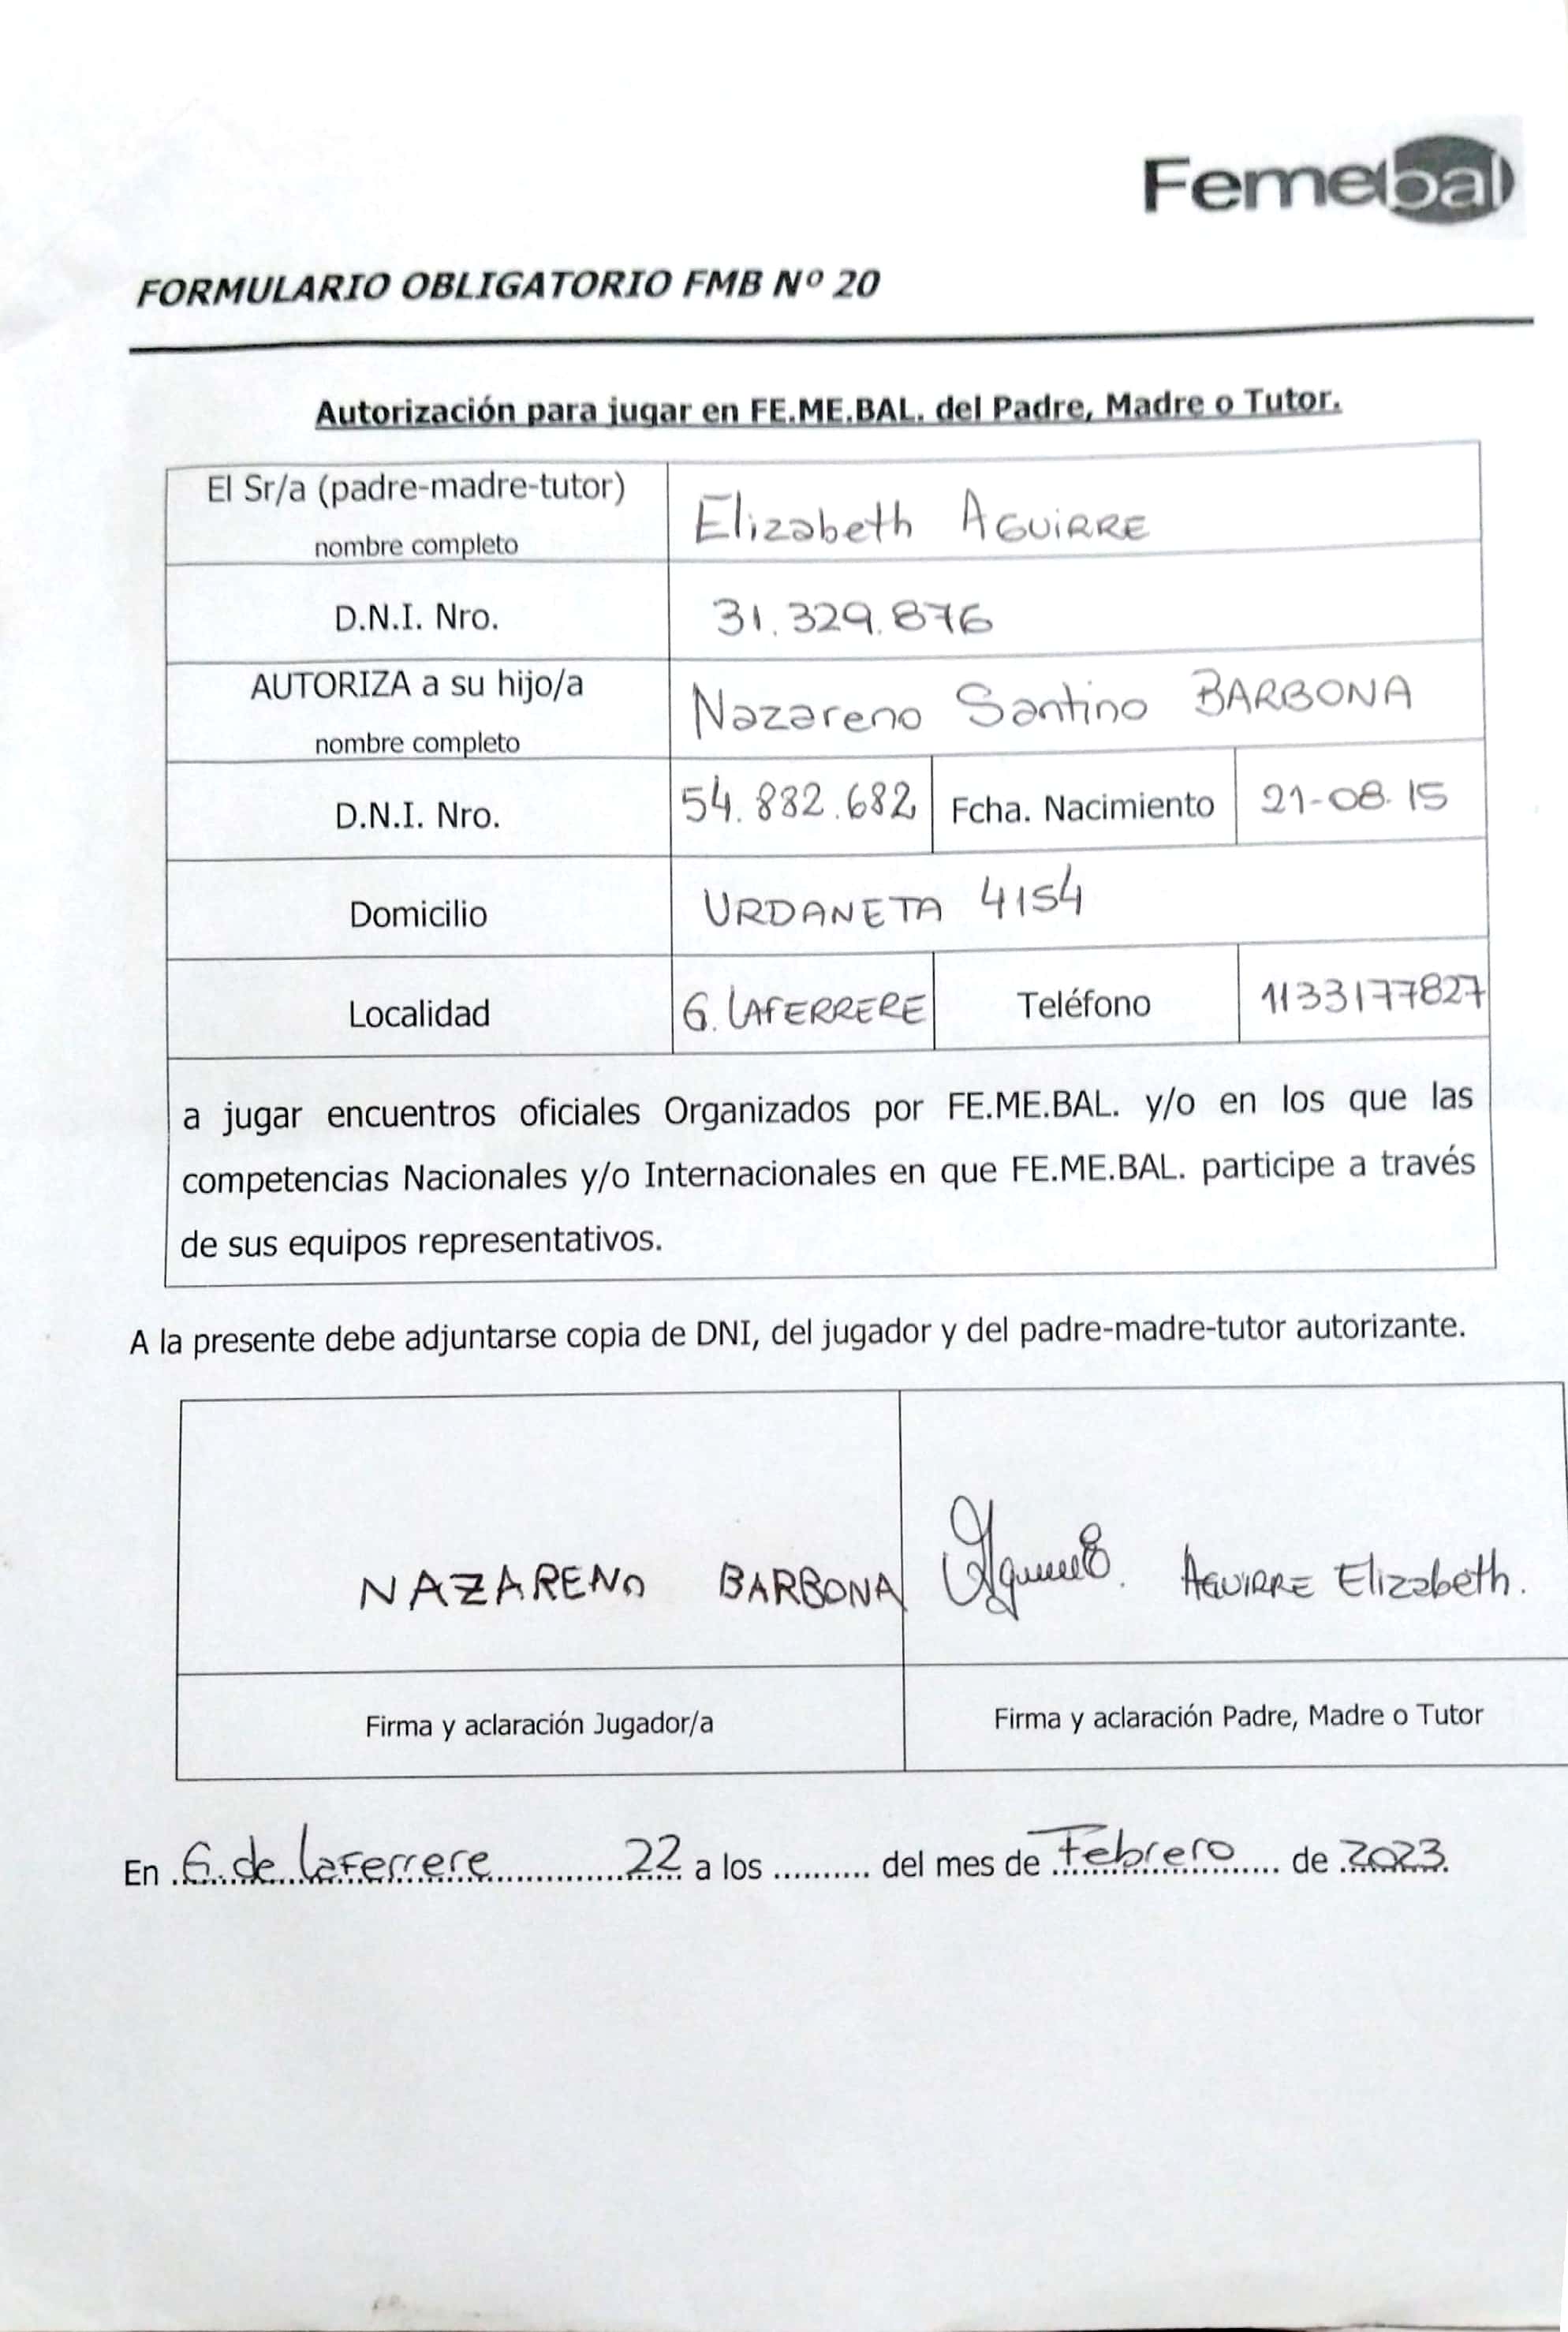 Femebal
FORMULARIO OBLIGATORIO FMB Nº 20
Autorización para jugar en FE.ME.BAL. del Padre, Madre o Tutor.
El Sr/a (padre-madre-tutor)
nombre completo
Elizabeth AGUIRRE
D.N.I. Nro.
31.329.876
AUTORIZA a su hijo/a
nombre completo
Nazareno Santino BARBONA
D.N.I. Nro.
54.882.682
Fcha. Nacimiento
21-08.15
Domicilio
URDANETA 4154
Localidad
G. LAFERRERE
Teléfono
1133177827
a jugar encuentros oficiales Organizados por FE.ME.BAL. y/o en los que las
competencias Nacionales y/o Internacionales en que FE.ME.BAL. participe a través
de sus equipos representativos.
A la presente debe adjuntarse copia de DNI, del jugador y del padre-madre-tutor autorizante.
NAZARENO BARBONA
AGUIRRE Elizabeth.
Firma y aclaración Jugador/a
Firma y aclaración Padre, Madre o Tutor
En G. de Laferrere 22 a los .......... del mes de Febrero de 2023.